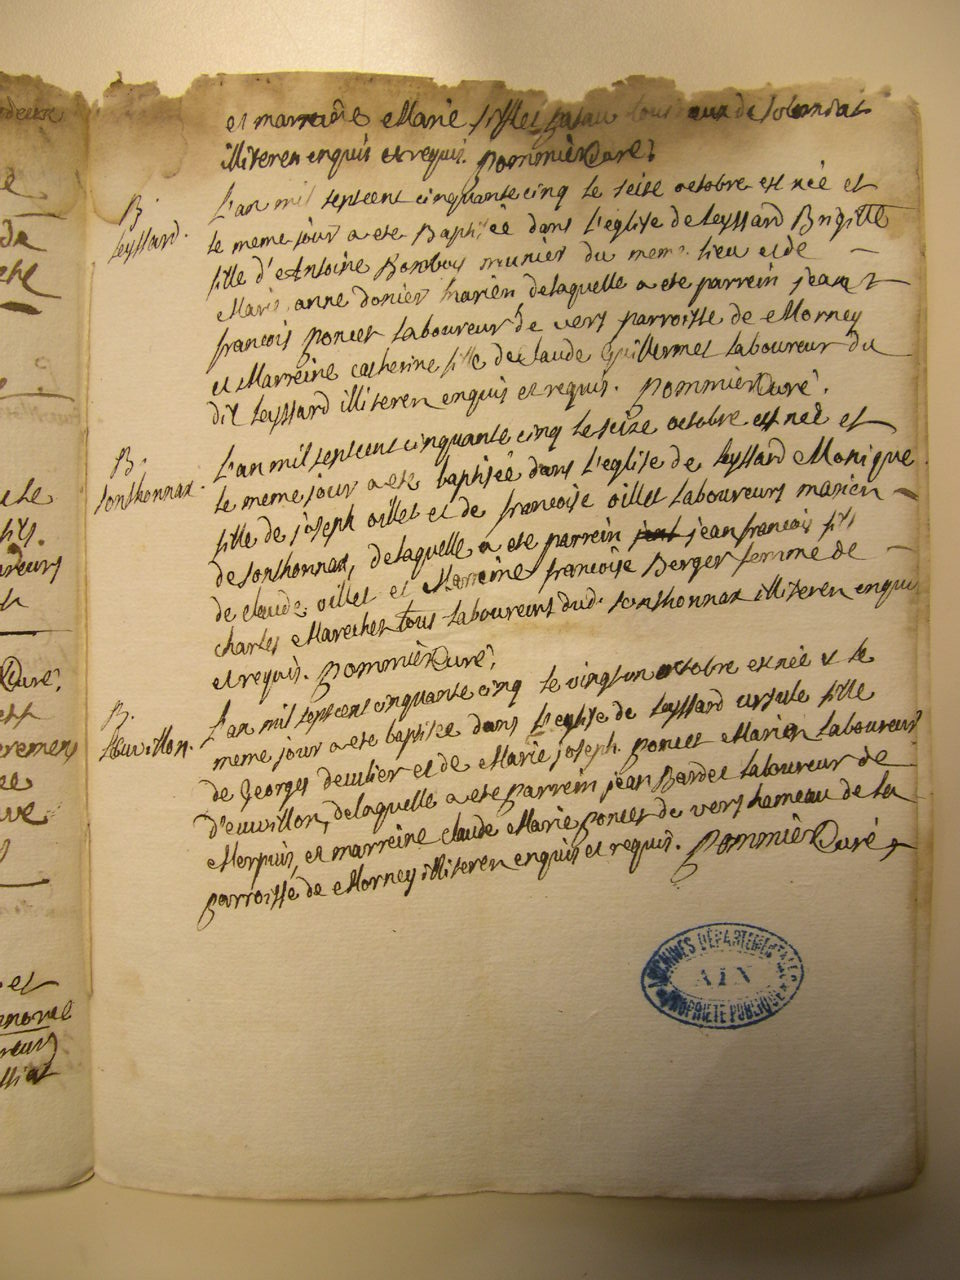 et marraine Marie tous deux de Solomiat
illiteren enquis et requis. Pommier Curé.
B.
Leyssard.
L'an mil septcent cinquante cinq le seise octobre est née et
le meme jour a ete Baptisée dans l'eglise de Leyssard Brigitte
fille d'Antoine munier du meme lieu et de
Marie anne donier mariés delaquelle a ete parrein jean
francois poncet laboureur de vers parroisse de Mornay
et Marreine catherine fille de Claude Guillermet laboureur du
dit Leyssard illiteren enquis et requis. Pommier Curé.
B.
Sonthonnax.
L'an mil septcent cinquante cinq le seize octobre est née et
le meme jour a ete baptisée dans l'eglise de Leyssard Monique
fille de joseph oillet et de francoise oillet laboureurs marien
de Sonthonnax, delaquelle a ete parrein jean francois fils
de claude oillet et Marreine francoise Berger femme de
charles Marechet tous laboureurs dud. Sonthonnax illiteren enquis
et requis. Pommier Curé.
B.
L'an mil septcent cinquante cinq le vingt un octobre est née & le
meme jour a ete baptisée dans l'eglise de Leyssard ursule fille
de Georges et de Marie joseph poncet Marien laboureurs
delaquelle a ete parrein jean Bardet laboureur de
Merpuis, et marreine claude Marie poncet de vers hameau de la
parroisse de Mornay illiteren enquis et requis. Pommier Curé
ARCHIVES DÉPARTEMENTALES
AIN
PROPRIÉTÉ PUBLIQUE